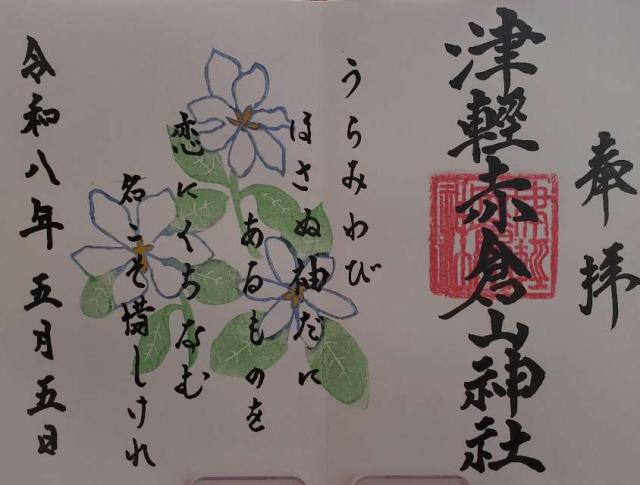 奉拝
津軽赤倉山神社
うらみわび
ほさぬ袖だに
あるものを
恋にくちなむ
名こそ惜しけれ
令和八年五月五日